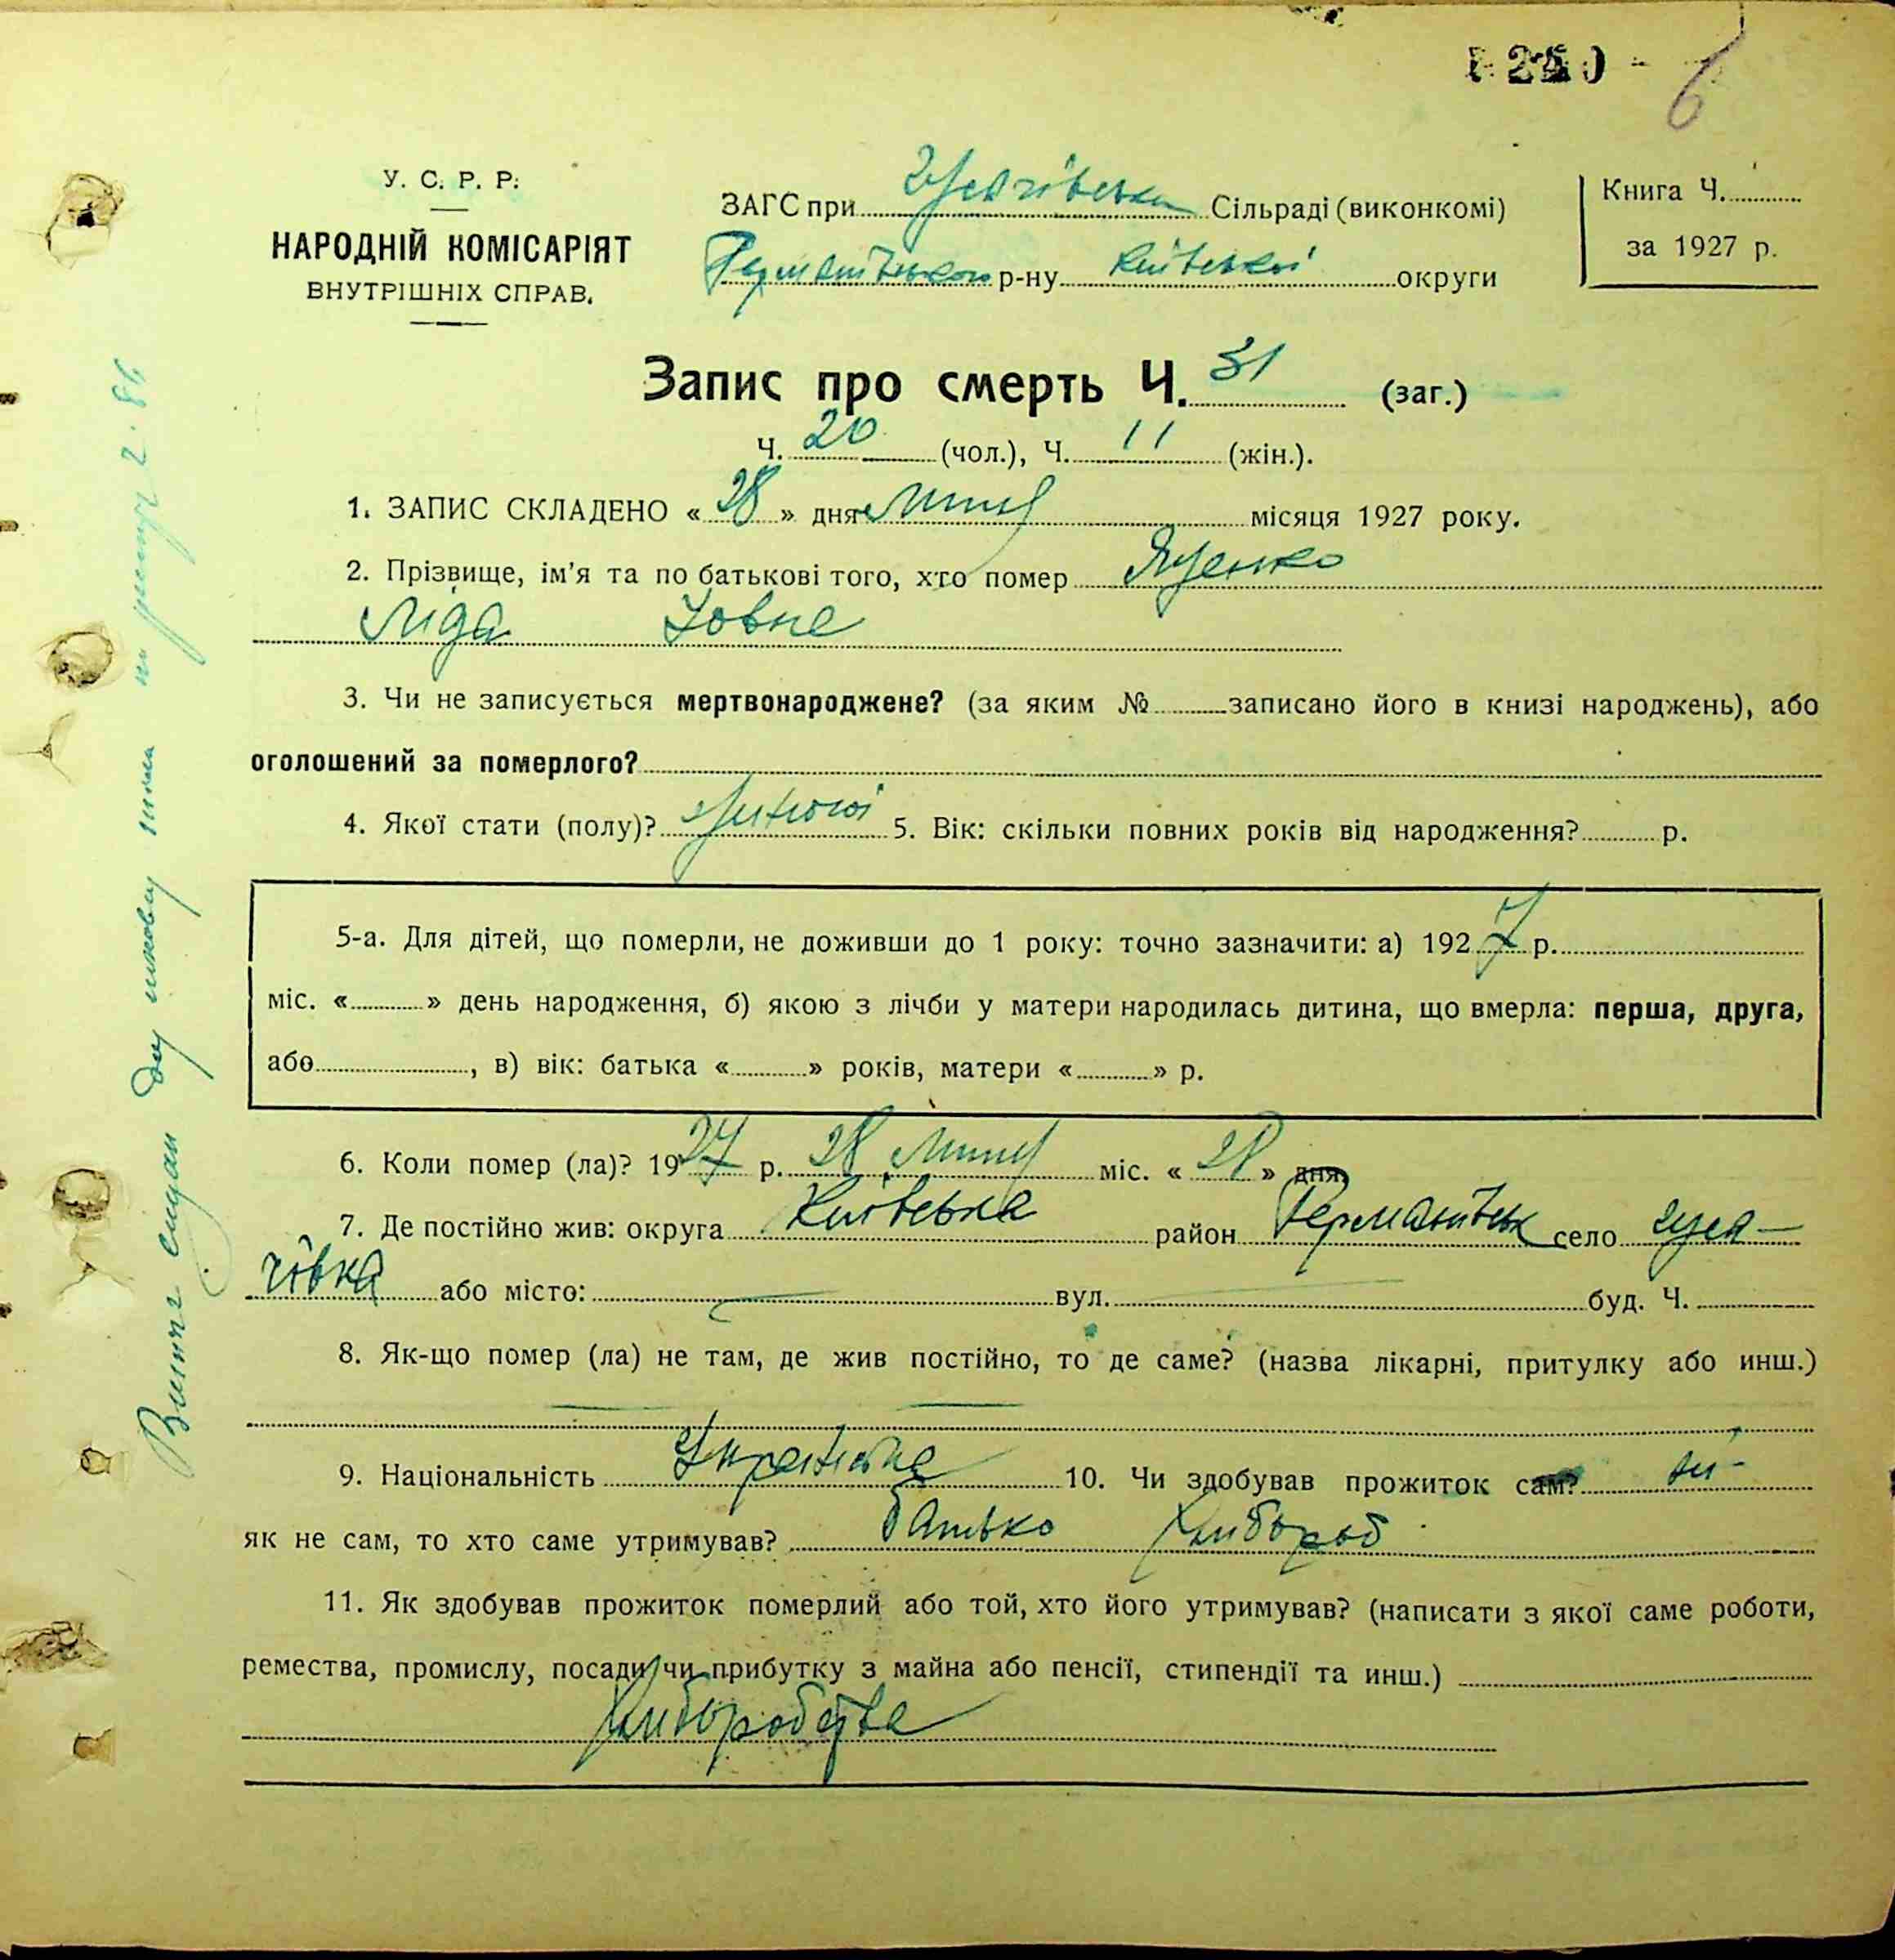 6
У. С. Р. Р.
НАРОДНІЙ КОМІСАРІЯТ
ВНУТРІШНІХ СПРАВ.
ЗАГС при Сільраді (виконкомі)
Германівського р-ну Київської округи
Книга Ч.
за 1927 р.
Запис про смерть Ч. 31 (заг.)
Ч. 20 (чол.), Ч. 11 (жін.).
1. ЗАПИС СКЛАДЕНО « 28 » дня місяця 1927 року.
2. Прізвище, ім'я та по батькові того, хто помер Яценко
Ліда Іовна
3. Чи не записується мертвонароджене? (за яким № записано його в книзі народжень), або
оголошений за померлого?
4. Якої стати (полу)? Жіночої 5. Вік: скільки повних років від народження? р.
5-а. Для дітей, що померли, не доживши до 1 року: точно зазначити: а) 1927 р.
міс. « » день народження, б) якою з лічби у матери народилась дитина, що вмерла: перша, друга,
або , в) вік: батька « » років, матери « » р.
6. Коли помер (ла)? 1927 р. 28 міс. « 28 » дня
7. Де постійно жив: округа Київська район Германівськ село
або місто: вул. буд. Ч.
8. Як-що помер (ла) не там, де жив постійно, то де саме? (назва лікарні, притулку або инш.)
9. Національність Українка 10. Чи здобував прожиток сам? ні
як не сам, то хто саме утримував? батько хлібороб
11. Як здобував прожиток померлий або той, хто його утримував? (написати з якої саме роботи,
ремества, промислу, посади чи прибутку з майна або пенсії, стипендії та инш.)
хліборобства